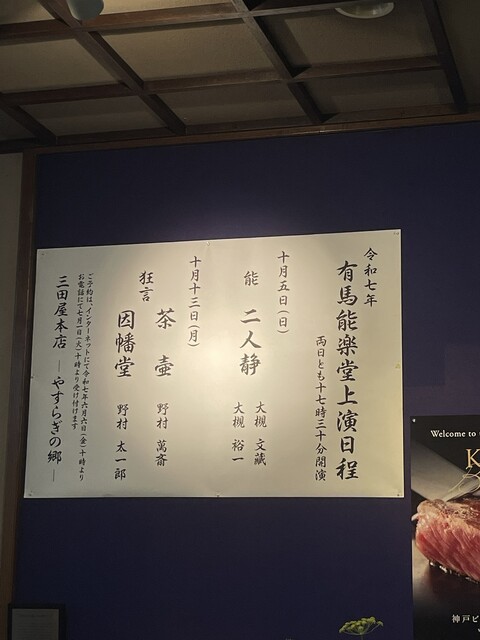 令和七年
有馬能楽堂上演日程
両日とも十七時三十分開演
十月五日(日)
能 二人静 大槻 文藏
大槻 裕一
十月十三日(月)
狂言 茶壷 野村 萬斎
因幡堂 野村 太一郎
ご予約は、インターネットにて令和七年六月六日(金)十時より
お電話にて七月一日(火)十時より受け付けます
三田屋本店 ―やすらぎの郷―
Welcome to
K
神戸ビ